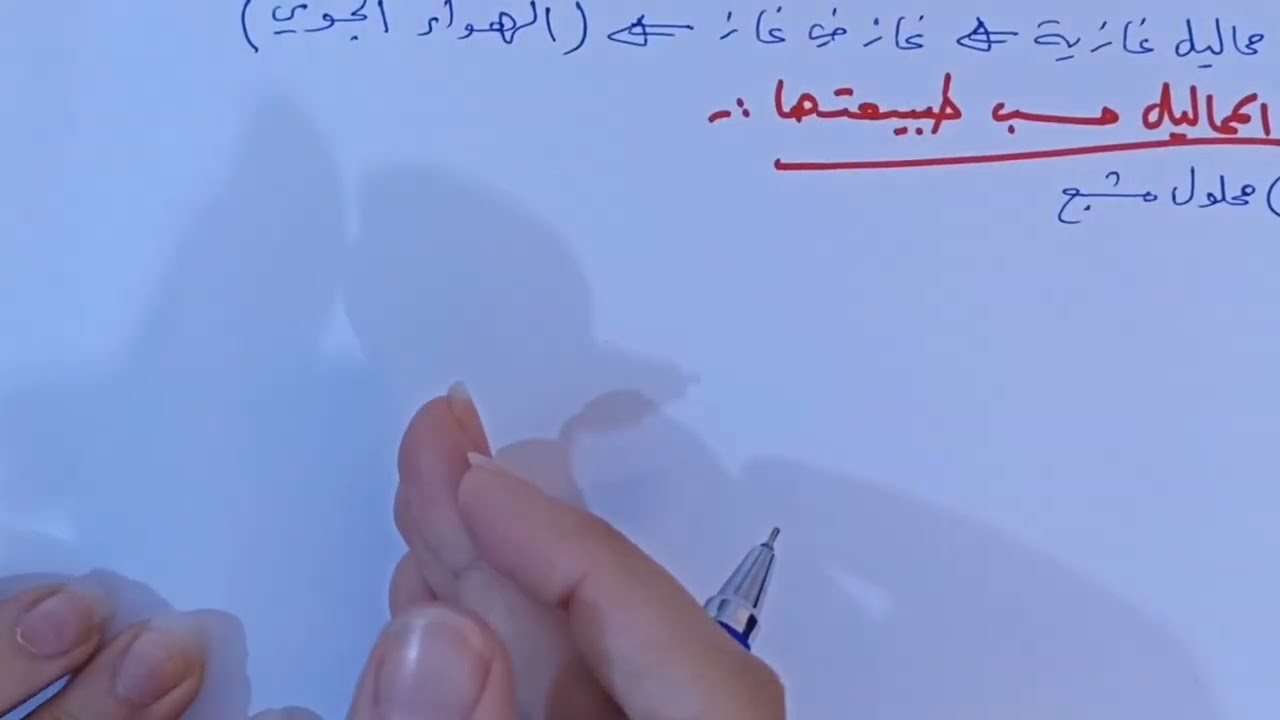 محاليل غازية ← غاز في غاز ← (الهواء الجوي)
المحاليل حسب طبيعتها :-
) محلول مشبع